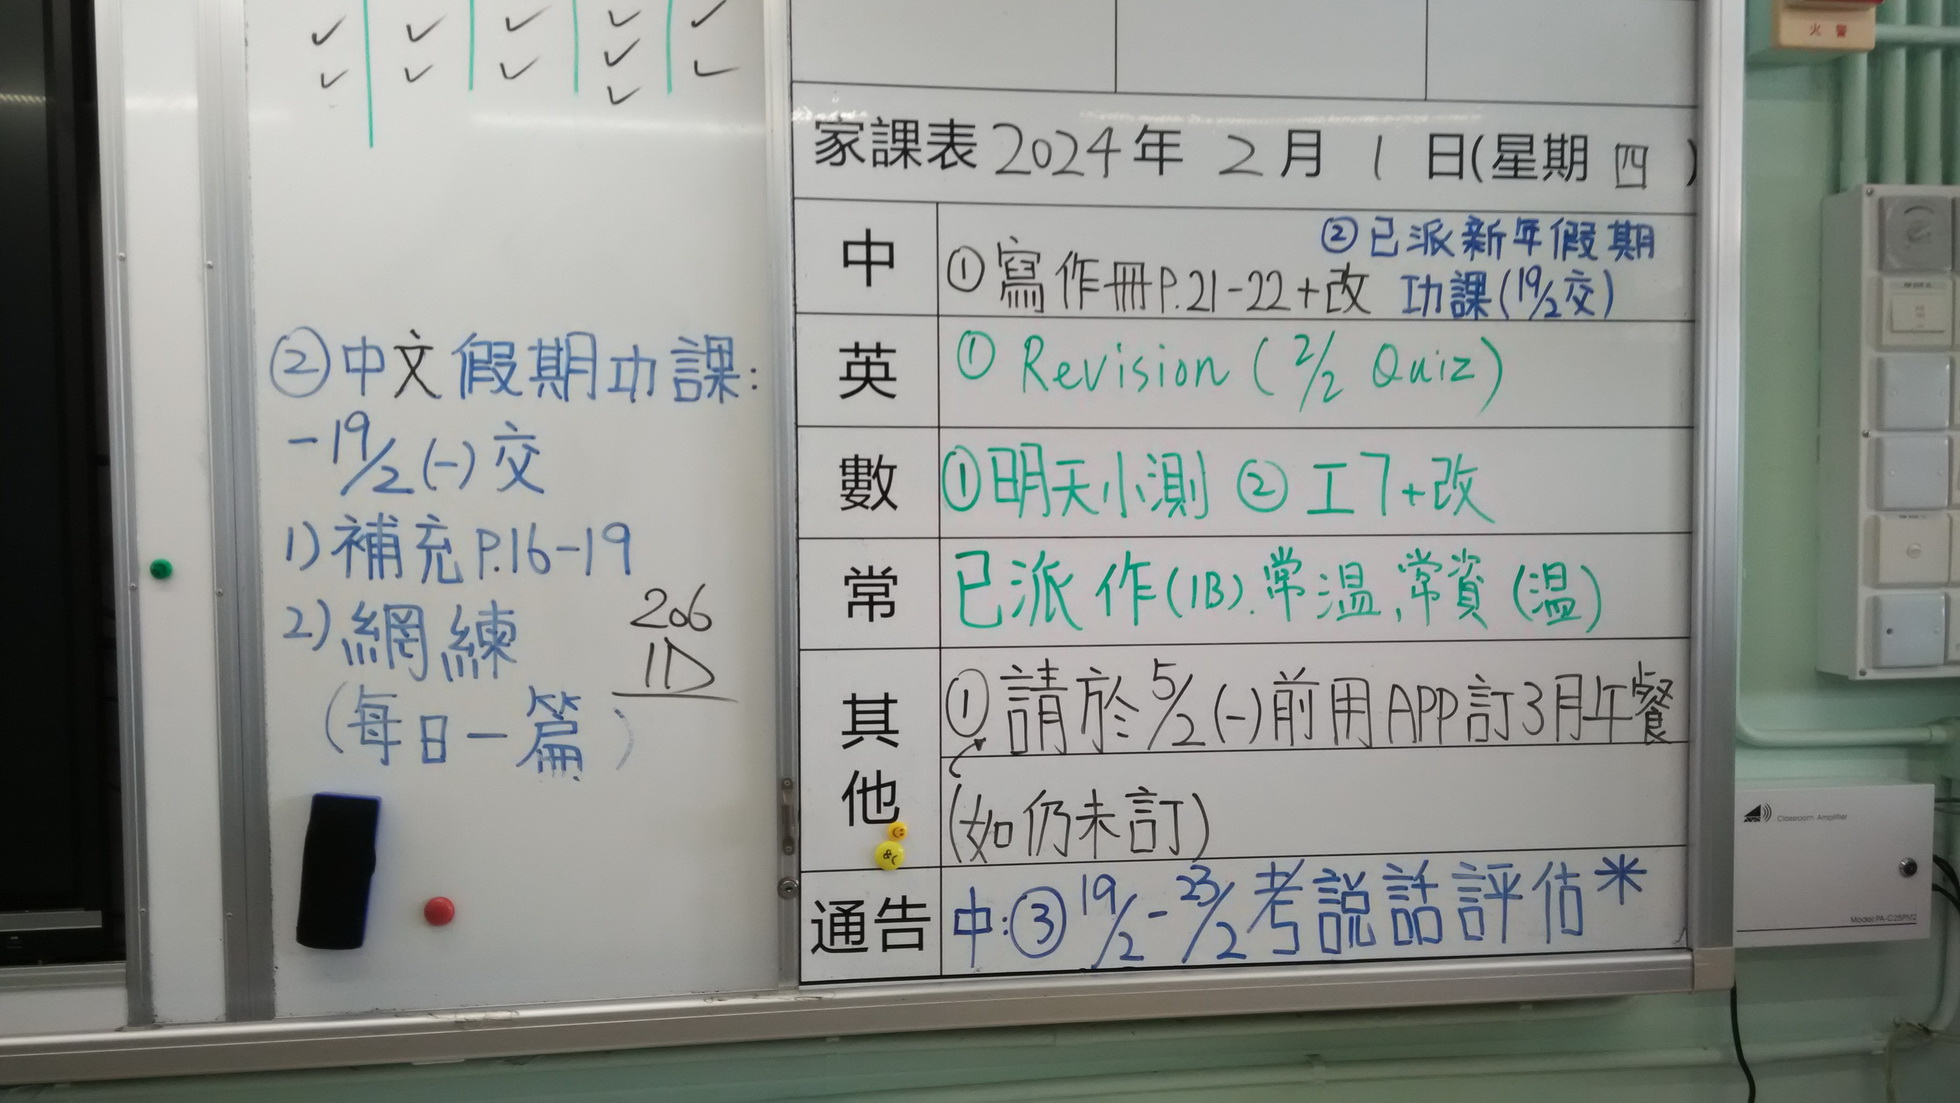 ②中文假期功課:
-19/2(一)交
1)補充P.16-19
2)網練
(每日一篇)
206
1D
家課表2024年2月1日(星期四)
中
①寫作冊P.21-22+改
②已派新年假期
功課(19/2交)
英
① Revision (2/2 Quiz)
數
①明天小測 ②工7+改
常
已派作(1B).常溫,常資(溫)
其他
①請於5/2(一)前用APP訂3月午餐
(如仍未訂)
通告
中:③19/2-23/2考説話評估*
火警
Classroom Amplifier
Model:PA-C25PM2